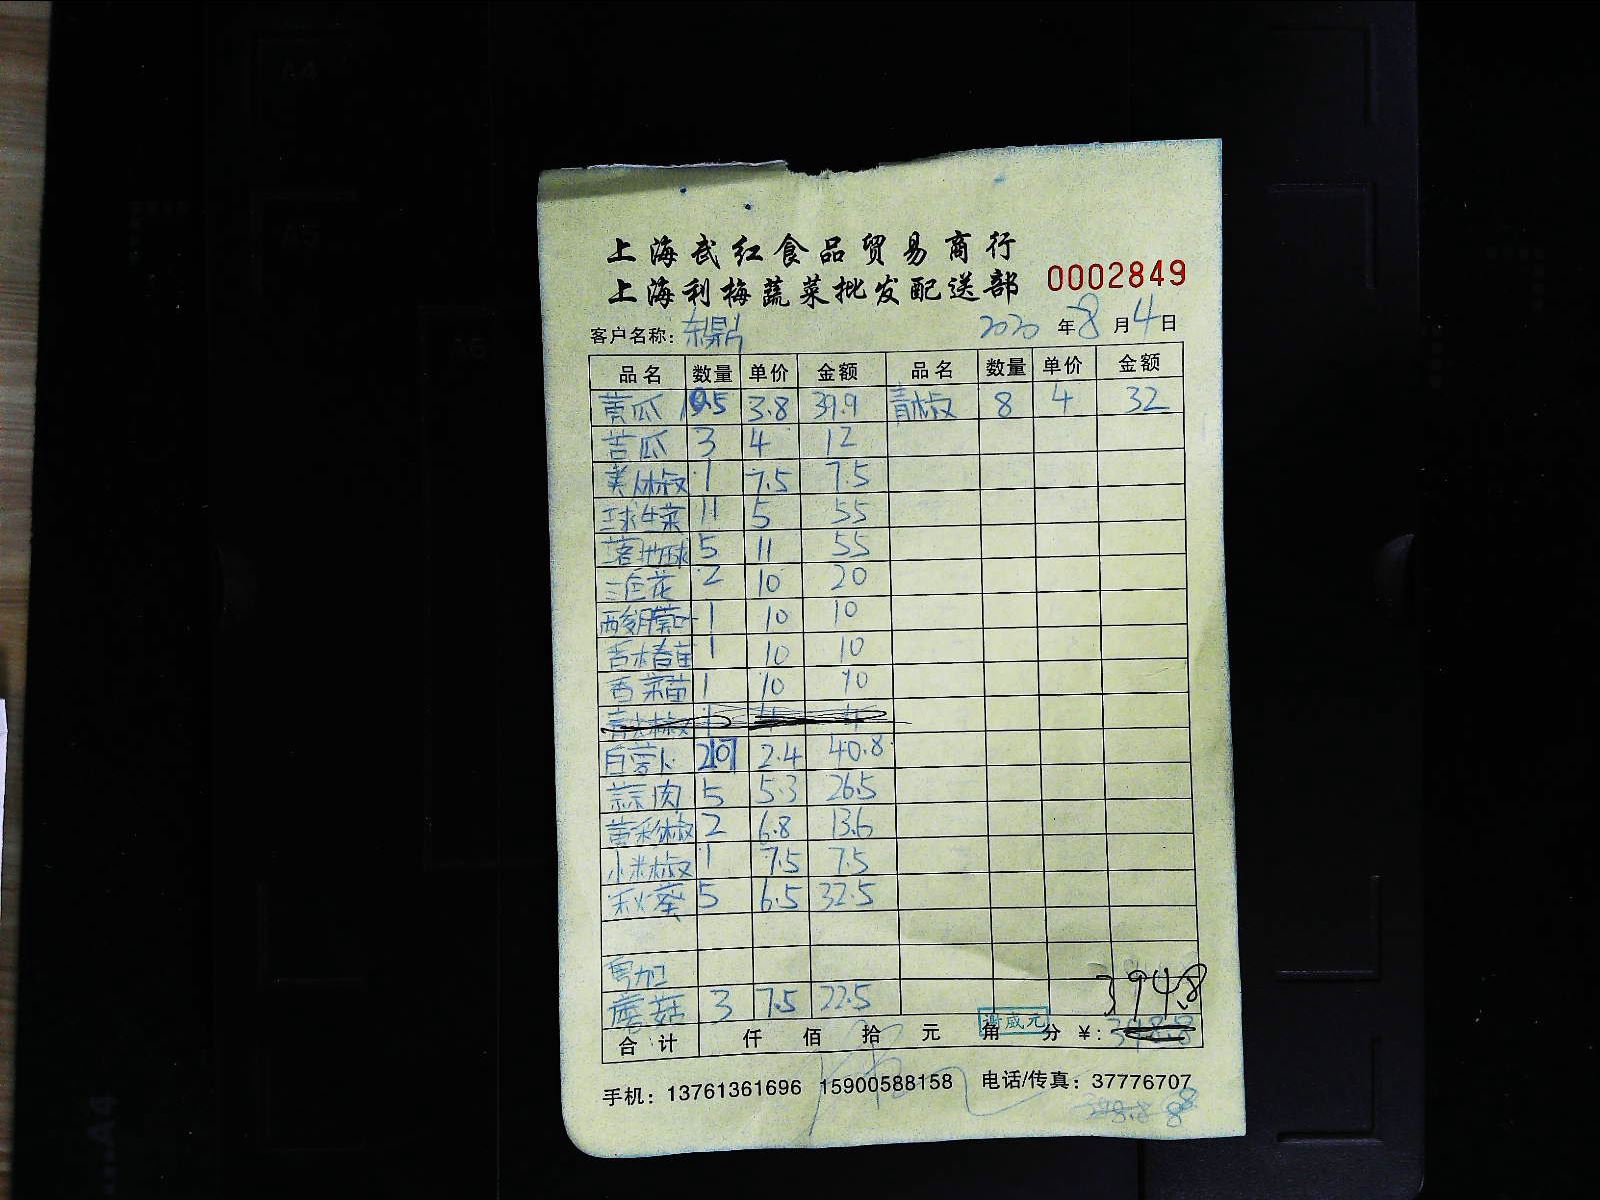 上海武红食品贸易商行
上海利梅蔬菜批发配送部 0002849
客户名称: 东鼎 2020 年 8 月 4 日
品名 数量 单价 金额 品名 数量 单价 金额
黄瓜 10.5 3.8 39.9 青椒 8 4 32
苦瓜 3 4 12
美人椒 1 7.5 7.5
球生菜 11 5 55
5 11 55
三色花 2 10 20
1 10 10
香椿苗 1 10 10
香菜苗 1 10 10
白萝卜 2.4 40.8
蒜肉 5 5.3 26.5
黄彩椒 2 6.8 13.6
小米椒 1 7.5 7.5
秋葵 5 6.5 32.5
另加
蘑菇 3 7.5 22.5
394.8
合计 仟 佰 拾 元 角 分 ¥: 398.8
谢威元
手机: 13761361696 15900588158 电话/传真: 37776707